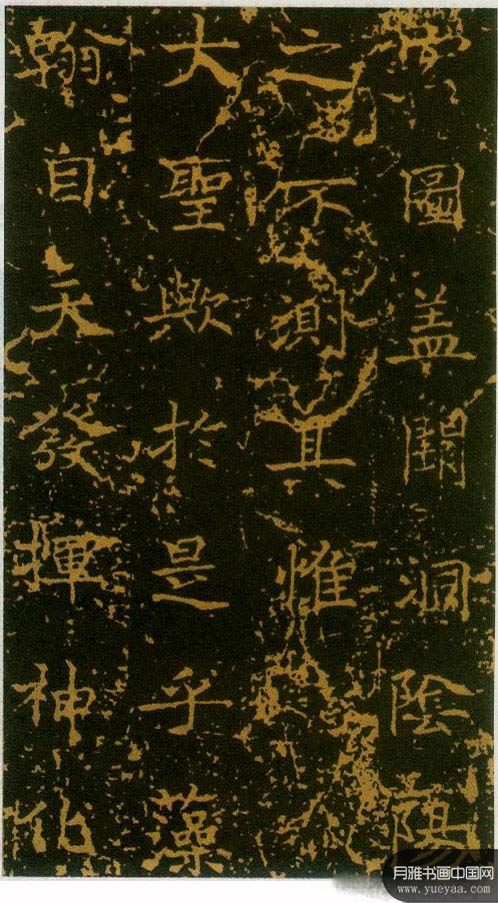 圖盖洞陰陽
之不測其惟
大聖歟於是乎藻
翰自天發揮神化
月雅书画中国网
www.yueyaa.com